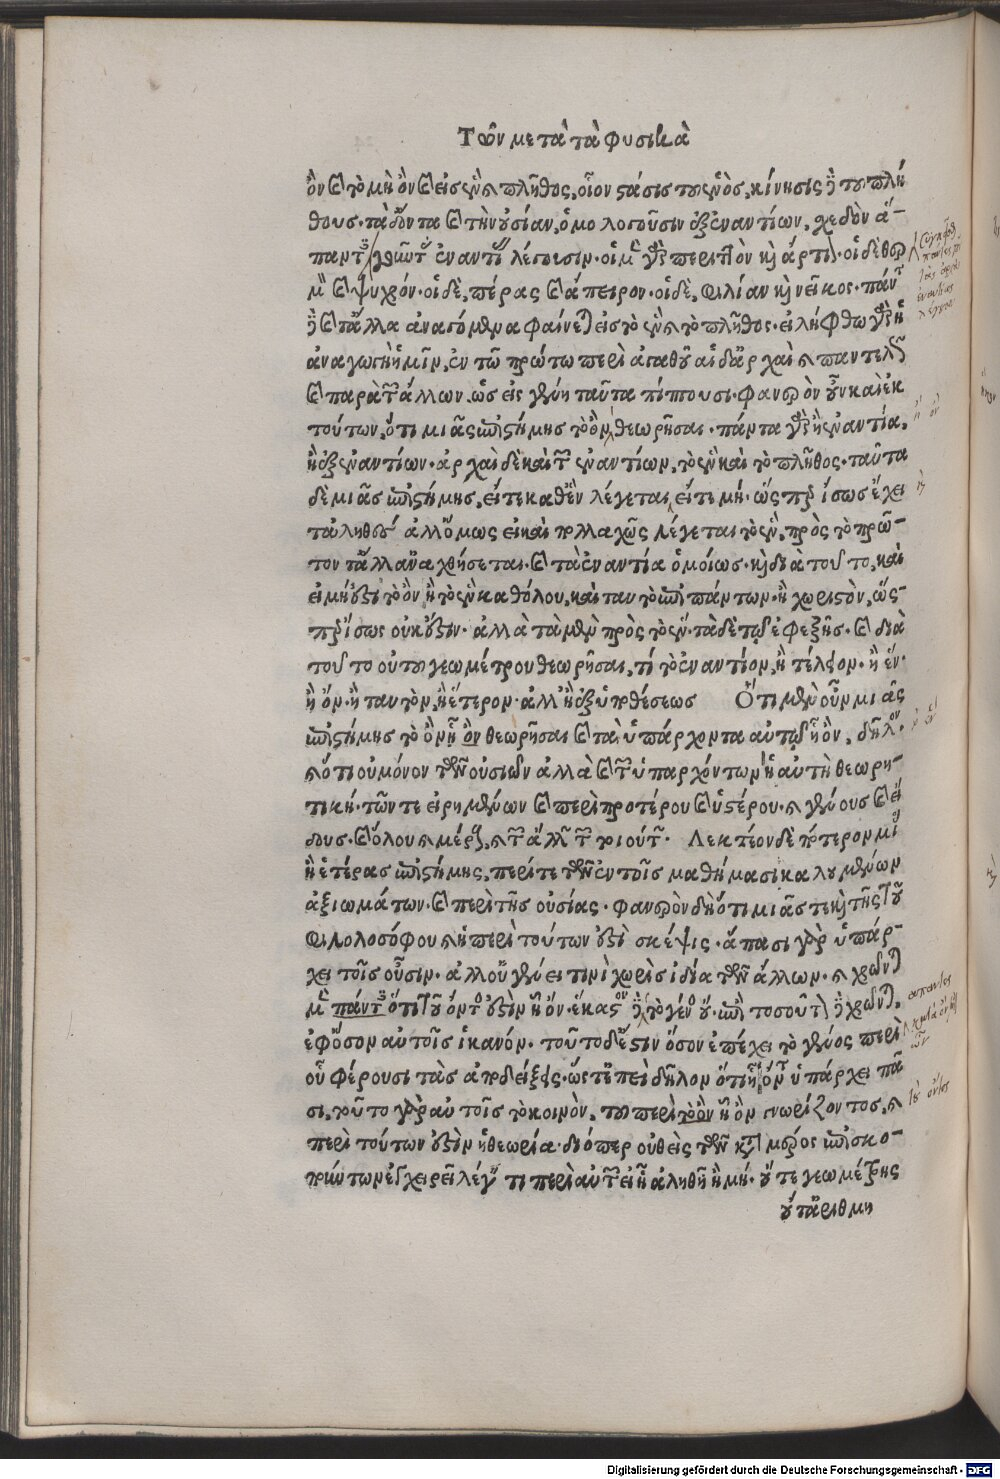 Τῶν μετὰ τὰ φυσικὰ
ὂν καὶ τὸ μὴ ὂν καὶ εἰς ἓν καὶ πλῆθος, οἷον στάσις τοῦ ἑνὸς, κίνησις δὲ τοῦ πλή
θους. τὰ δ' ὄντα καὶ τὴν οὐσίαν, ὁμολογοῦσιν ἐξ ἐναντίων, χεδὸν ἅ-
παντες γοῦν τὰς ἐναντίας λέγουσιν. οἱ μὲν γὰρ περιττὸν κὴ ἄρτιον. οἱ δὲ θερ
μὸν καὶ ψυχρόν. οἱ δὲ, πέρας καὶ ἄπειρον. οἱ δὲ, φιλίαν κὴ νεῖκος. πάντα
δὲ καὶ τἆλλα ἀναγόμενα φαίνεται εἰς τὸ ἓν καὶ τὸ πλῆθος. εἰλήφθω γὰρ ἡ
ἀναγωγὴ ἡμῖν, ἐν τῶ πρώτω περὶ ἀγαθοῦ αἱ δ' ἀρχαὶ καὶ παντελῶς
καὶ παρὰ τῶν ἄλλων, ὡς εἰς γένη ταῦτα πίπτουσι. φανερὸν οὖν καὶ ἐκ
τούτων, ὅτι μιᾶς ἐπιστήμης τὸ ὂν, θεωρῆσαι. πάντα γὰρ ἢ ἐναντία,
ἢ ἐξ ἐναντίων. ἀρχαὶ δὲ καὶ τῶν ἐναντίων, τὸ ἓν καὶ τὸ πλῆθος. ταῦτα
δὲ μιᾶς ἐπιστήμης, εἴτε καθ' ἓν λέγεται, εἴτε μή. ὥσπερ ἴσως ἔχει
τἀληθές ἀλλ' ὅμως εἰ καὶ πολλαχῶς λέγεται τὸ ἓν, πρὸς τὸ πρῶ-
τον τἆλλα ῥηθήσεται. καὶ τὰ ἐναντία ὁμοίως. κὴ διὰ τοῦτο, καὶ
εἰ μή ἐστι τὸ ὂν ἢ τὸ ἓν καθόλου, καὶ ταυτὸ ἐπὶ πάντων. ἢ χωριστὸν, ὥς-
περ ἴσως οὐκ ἔστιν. ἀλλὰ τὰ μὲν πρὸς τὸ ἕν. τὰ δὲ τῷ ἐφεξῆς. καὶ διὰ
τοῦτο οὐ τοῦ γεωμέτρου θεωρῆσαι, τί τὸ ἐναντίον, ἢ τέλειον. ἢ ἕν.
ἢ ὄν. ἢ ταυτὸν, ἢ ἕτερον. ἀλλ' ἢ ἐξ ὑποθέσεως Ὅτι μὲν οὖν μιᾶς
ἐπιστήμης τὸ ὂν ᾗ ὂν θεωρῆσαι καὶ τὰ ὑπάρχοντα αὐτῷ ᾗ ὂν, δῆλον.
καὶ ὅτι οὐ μόνον τῶν οὐσιῶν ἀλλὰ καὶ τῶν ὑπαρχόντων ἡ αὐτὴ θεωρη-
τική. τῶν τε εἰρημένων καὶ περὶ προτέρου καὶ ὑστέρου. καὶ γένους καὶ εἴ
δους. καὶ ὅλου καὶ μέρους, καὶ τῶν ἄλλων τῶν τοιούτων. Λεκτέον δὲ πότερον μιᾶς
ἢ ἑτέρας ἐπιστήμης, περί τε τῶν ἐν τοῖς μαθήμασι καλουμένων
ἀξιωμάτων. καὶ περὶ τῆς οὐσίας. φανερὸν δὴ ὅτι μιᾶς τε κὴ τῆς τοῦ
φιλολοσόφου καὶ ἡ περὶ τούτων ἐστὶ σκέψις. ἅπασι γὰρ ὑπάρ-
χει τοῖς οὖσιν. ἀλλ' οὐ γένει τινὶ χωρὶς ἰδία τῶν ἄλλων. καὶ χρῶνται
μὲν πάντες ὅτι τοῦ ὄντος ἐστὶν ᾗ ὄν. ἕκαστον δὲ τὸ γένος ὄν. ἐπὶ τοσοῦτον δὲ χρῶνται,
ἐφ' ὅσον αὐτοῖς ἱκανόν. τοῦτο δ' ἔστιν ὅσον ἐπέχει τὸ γένος περὶ
οὗ φέρουσι τὰς ἀποδείξεις. ὥστ' ἐπεὶ δῆλον ὅτι ᾗ ὄντα ὑπάρχει πᾶ
σι, τοῦτο γὰρ αὐτοῖς τὸ κοινὸν, τοῦ περὶ τὸ ὂν ᾗ ὂν γνωρίζοντος, καὶ
περὶ τούτων ἐστὶν ἡ θεωρία. διόπερ οὐθεὶς τῶν κατὰ μέρος ἐπισκο-
πούντων ἐγχειρεῖ λέγειν τι περὶ αὐτῶν εἰ ἢ ἀληθῆ ἢ μή. οὔτε γεωμέτρης
οὔτ' ἀριθμη
Digitalisierung gefördert durch die Deutsche Forschungsgemeinschaft - DFG